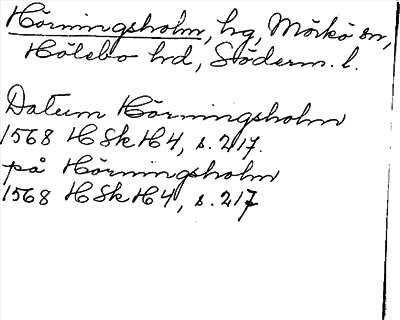 Hörningsholm, hg, Mörkö sn,
Hölebo hd, Söderm. l.
Datum Hörningsholm
1568 HSkH4, s. 217.
på Hörningsholm
1568 HSkH4, s. 217